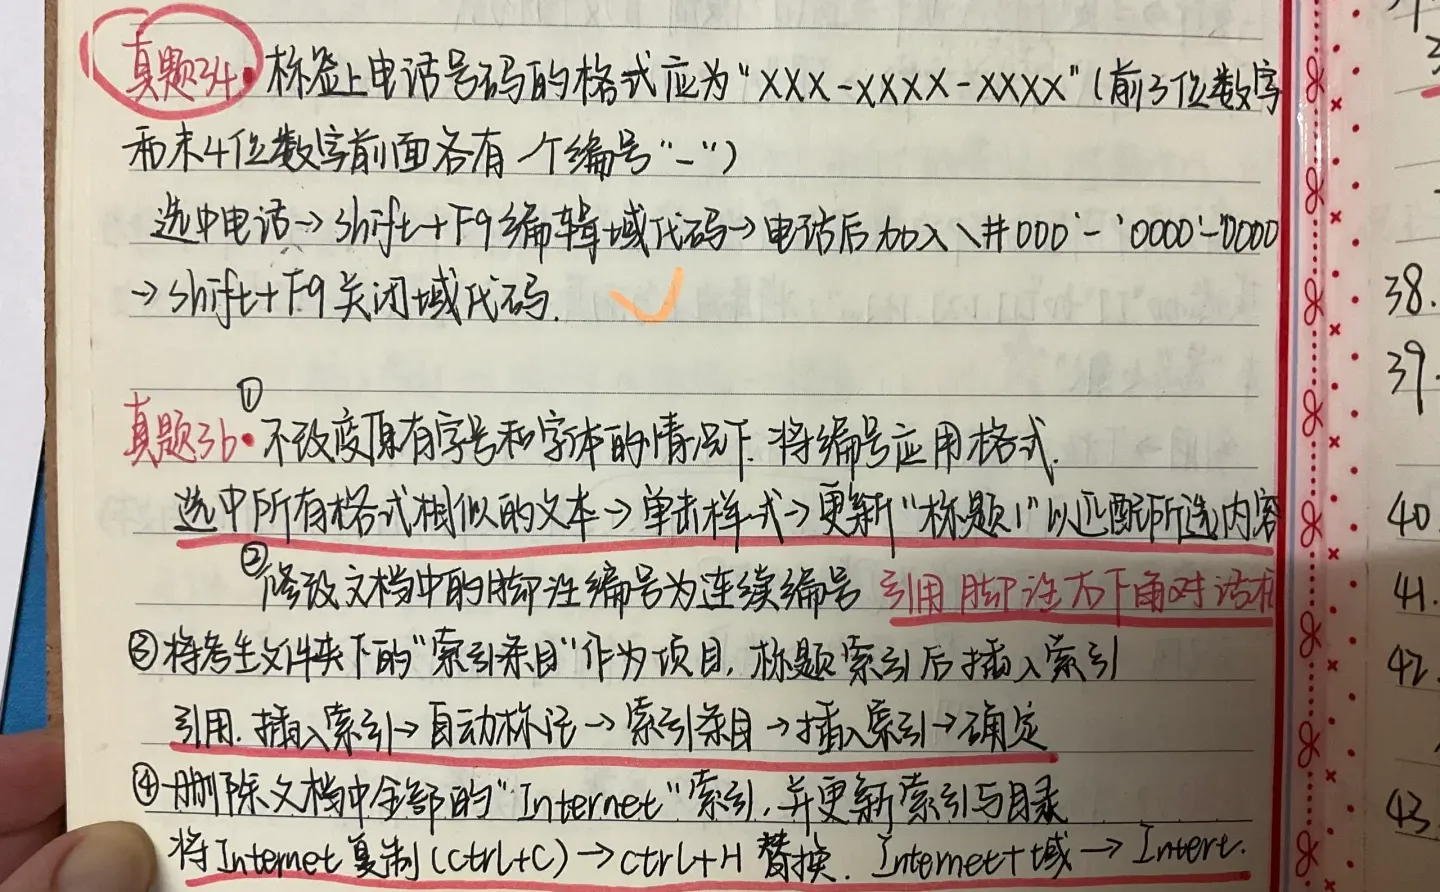 真题34·标签上电话号码的格式应为"XXX-XXXX-XXXX"(前3位数字
和末4位数字前面各有一个编号"-")
选中电话→shift+F9编辑域代码→电话后加入\#000'-'0000'-'0000
→shift+F9关闭域代码.
①
真题36·不改变原有字号和字体的情况下.将编号应用格式.
选中所有格式相似的文本→单击样式→更新"标题1"以匹配所选内容
②修改文档中的脚注编号为连续编号 引用脚注右下角对话框
③将考生文件夹下的"索引条目"作为项目,标题索引后插入索引
引用.插入索引→自动标记→索引条目→插入索引→确定
④删除文档中全部的"Internet"索引,并更新索引与目录
将Internet复制(ctrl+C)→ctrl+H替换.Internet+域→Intert.
38.
39.
40
41.
42.
43